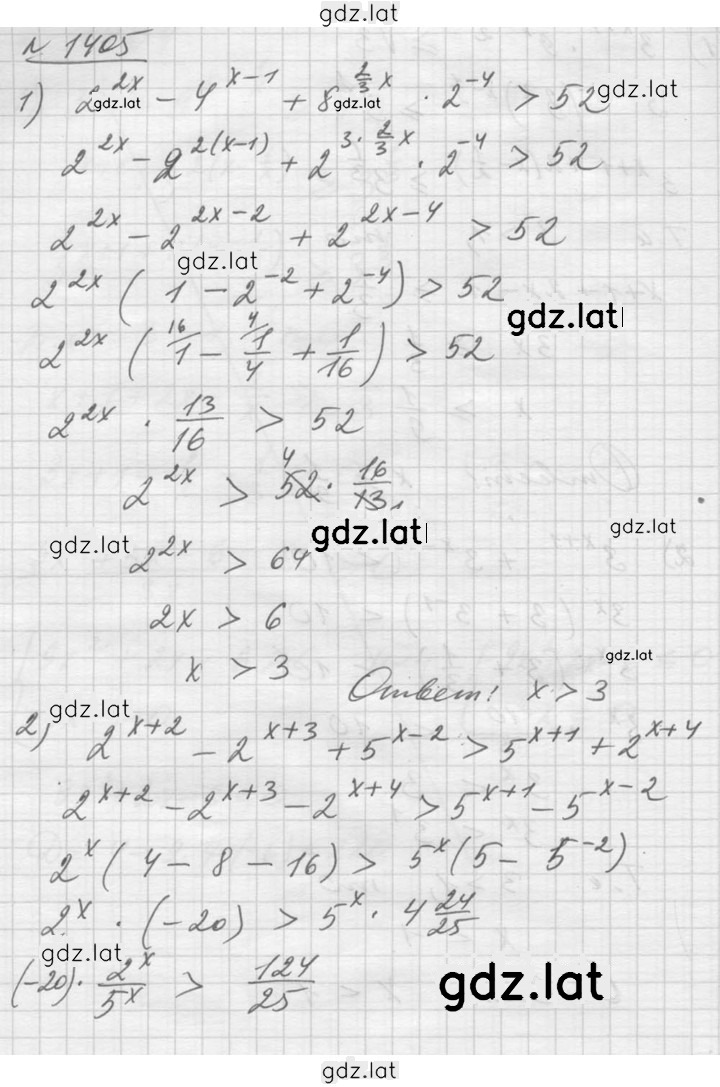 gdz.lat
№ 1405
1) 2^{2x} - 4^{x-1} + 8^{\frac{2}{3}x} · 2^{-4} > 52
gdz.lat gdz.lat gdz.lat
2^{2x} - 2^{2(x-1)} + 2^{3·\frac{2}{3}x} · 2^{-4} > 52
2^{2x} - 2^{2x-2} + 2^{2x-4} > 52
gdz.lat
2^{2x} (1 - 2^{-2} + 2^{-4}) > 52
gdz.lat
2^{2x} (\frac{1}{1}^{16} - \frac{1}{4}^{4} + \frac{1}{16}) > 52
2^{2x} · \frac{13}{16} > 52
2^{2x} > 52^{4} · \frac{16}{13}_{1}
gdz.lat gdz.lat gdz.lat
2^{2x} > 64
2x > 6
x > 3
gdz.lat
Ответ: x > 3
gdz.lat
2) 2^{x+2} - 2^{x+3} + 5^{x-2} > 5^{x+1} + 2^{x+4}
2^{x+2} - 2^{x+3} - 2^{x+4} > 5^{x+1} - 5^{x-2}
2^{x} (4 - 8 - 16) > 5^{x} (5 - 5^{-2})
2^{x} · (-20) > 5^{x} · 4\frac{24}{25}
gdz.lat
(-20) · \frac{2^{x}}{5^{x}} > \frac{124}{25}
gdz.lat
gdz.lat